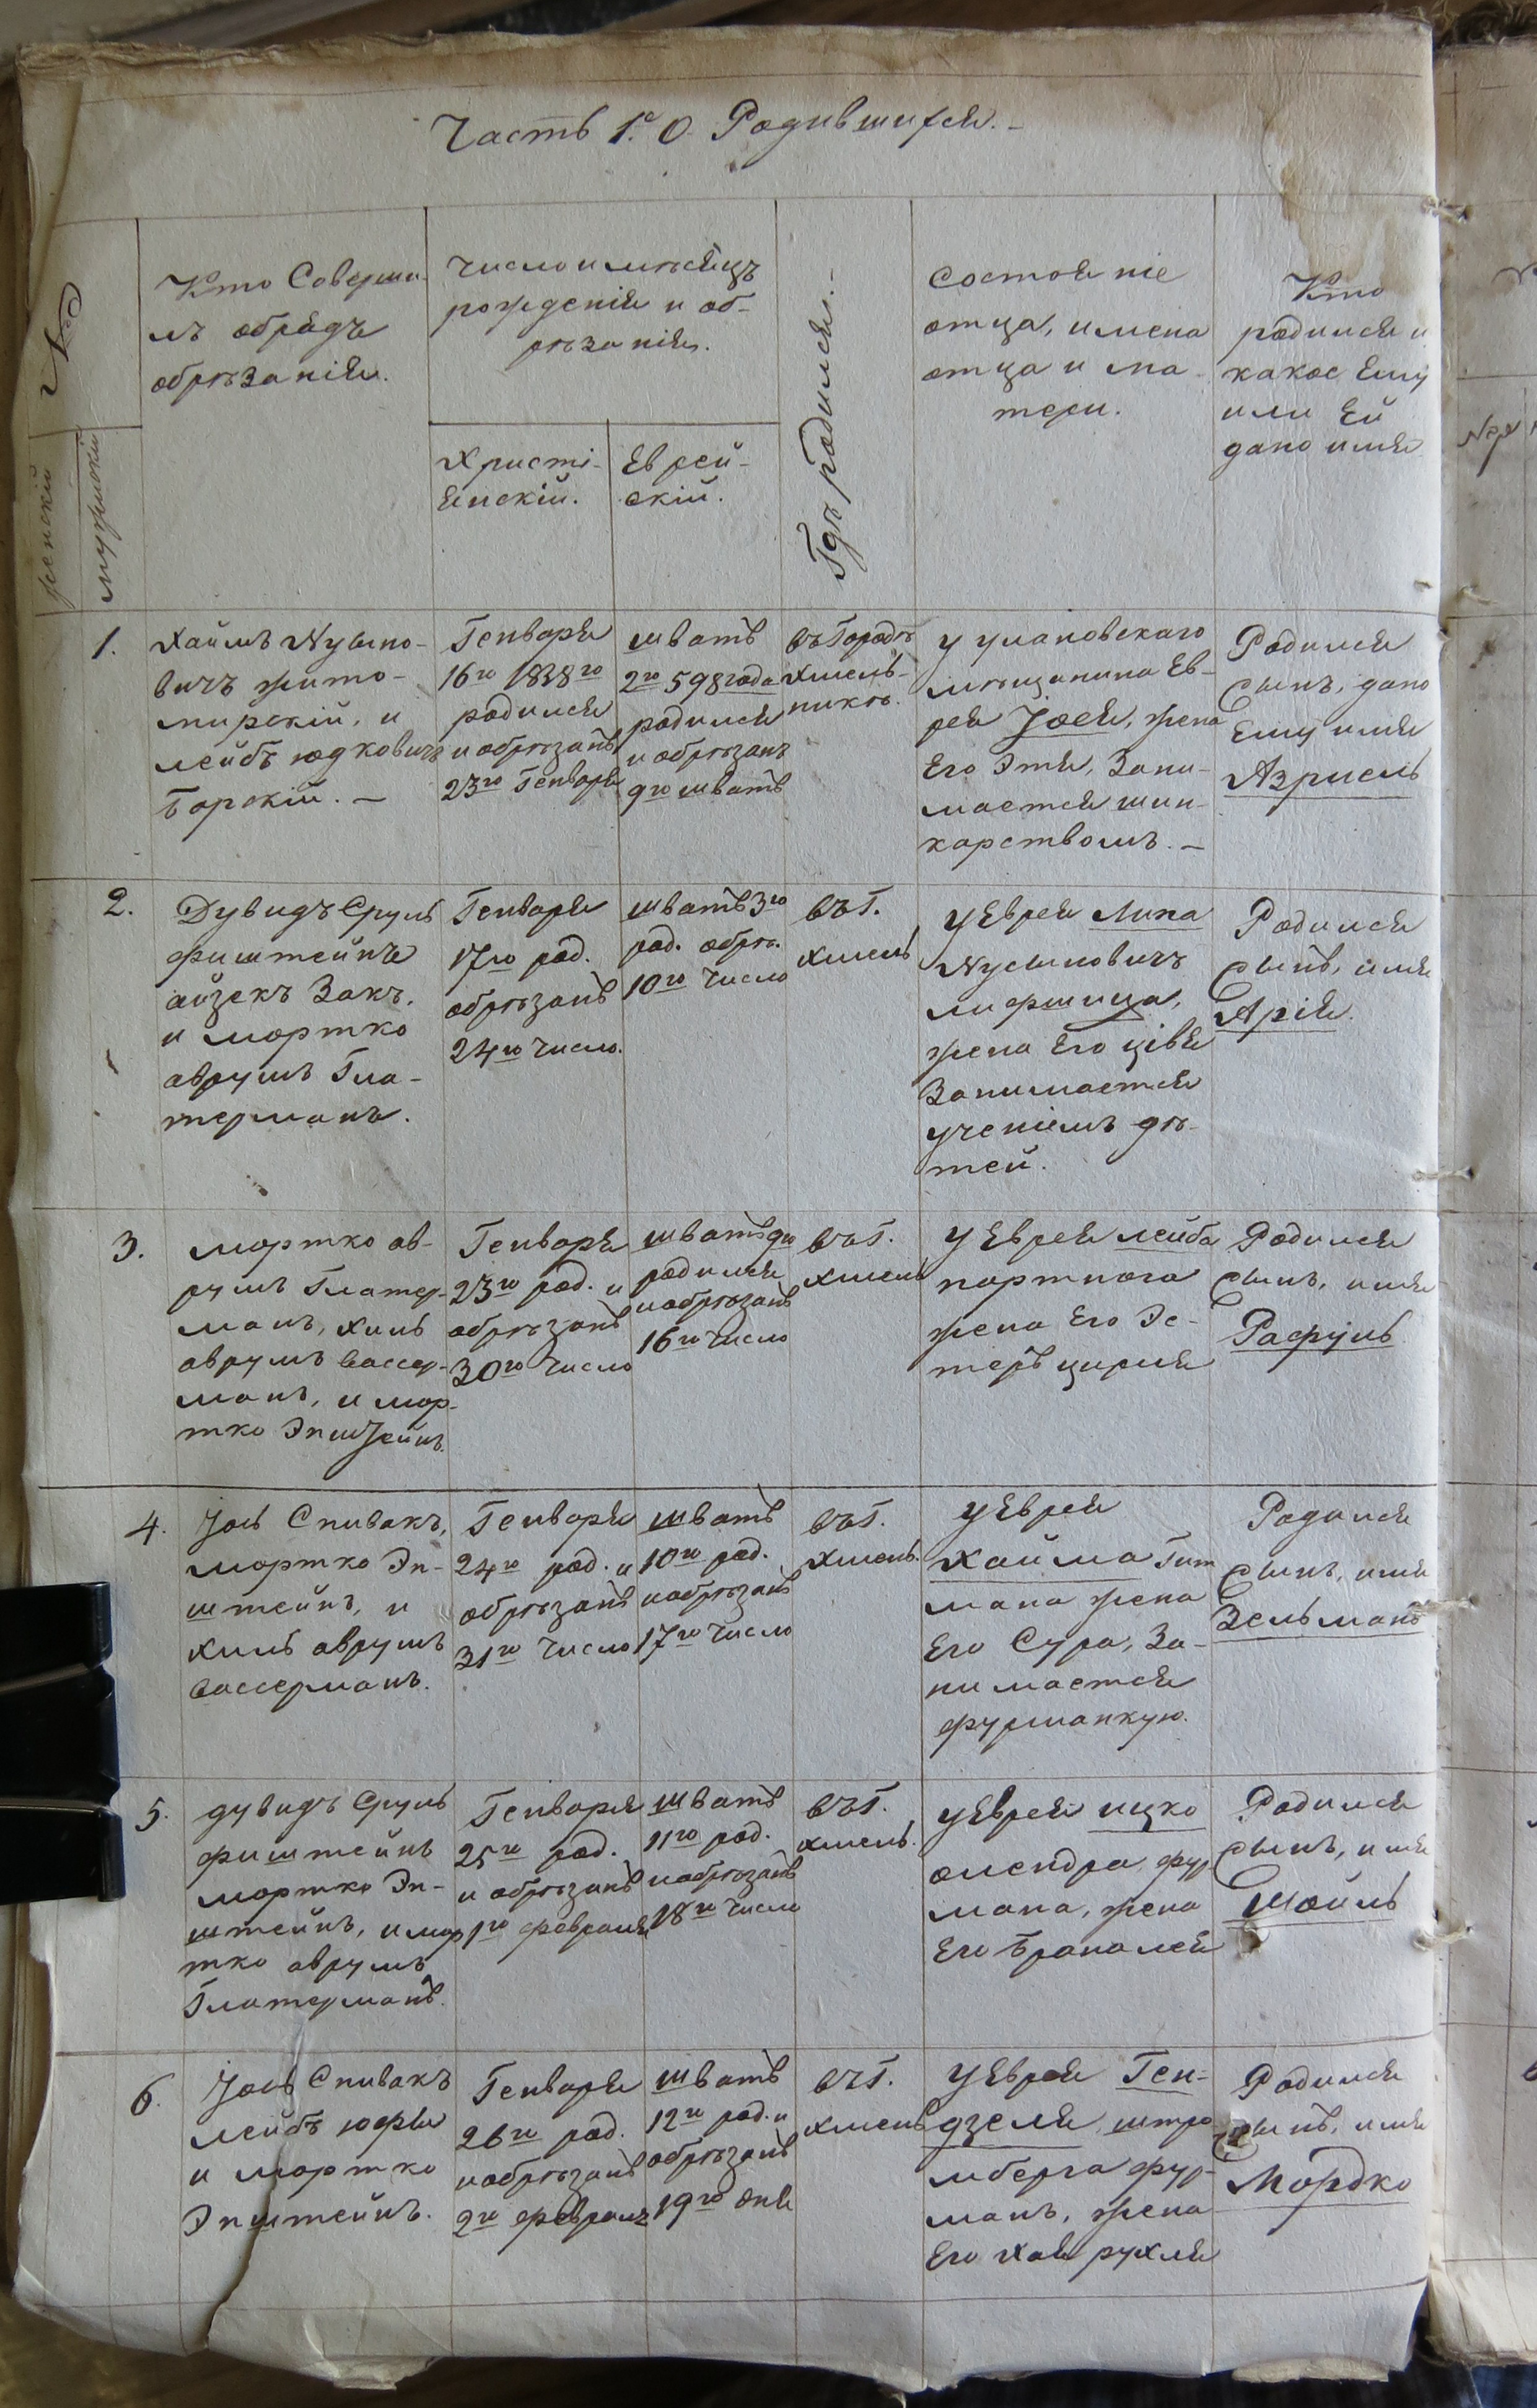 Часть 1я О Родившихся.
№
женскій
мужескій
Кто Соверши-
лъ обрядъ
обрѣзанія.
Число и мѣсяцъ
рожденія и об-
рѣзанія.
Христі-
янскій.
Еврей-
скій.
Гдѣ родился.
Состояніе
отца, имена
отца и ма-
тери.
Кто
родился и
какое Ему
или Ей
дано имя
1.
Хаимъ Мушко-
вичъ жито-
мирскій, и
лейбъ юдковичъ
Борскій.
Генваря
16го 1838го
родился
и обрѣзанъ
23го Генваря
шватъ
2го 598 года
родился
и обрѣзанъ
9го шватъ
въ Городѣ
Хмель-
никѣ.
у улановскаго
мѣщанина Ев-
рея Іосея, жена
Его Этя, Зани-
мается шин-
карствомъ.
Родился
Сынъ, дано
Ему имя
Азриель
2.
Дувидъ Сруль
фиштейнъ
айзекъ Закъ,
и мортко
аврумъ Гла-
терманъ.
Генваря
17го род.
обрѣзанъ
24го число.
шватъ 3го
род. обрѣ.
10го число
въ Г.
хмель
у Еврея Липа
Мусиновичъ
лифшица,
жена Его цівья
Занимается
ученіемъ дѣ-
тей.
Родился
Сынъ, имя
Арія.
3.
мортко ав-
румъ Глатер-
манъ, хиль
аврумъ вассер-
манъ, и мор-
тко Эпштейнъ.
Генваря
23го род. и
обрѣзанъ
30го число
шватъ 9го
родился
и обрѣзанъ
16го число
въ Г.
хмель
у Еврея лейба
портнога
жена Его Эс-
теръ цирля
Родился
Сынъ, имя
Рафуль
4.
Іось Спивакъ,
мортко Эп-
штейнъ, и
хиль аврумъ
вассерманъ.
Генваря
24го род. и
обрѣзанъ
31го число
шватъ
10го род.
и обрѣзанъ
17го число
въ Г.
хмель.
у Еврея
хаима Гит
мана жена
Его Сура, За-
нимается
фурманкую.
Родился
Сынъ, имя
Зельманъ
5.
дувидъ Сруль
фиштейнъ
мортко Эп-
штейнъ, и мор
тко аврумъ
Глатерманъ.
Генваря
25го род.
и обрѣзанъ
1го февраля
шватъ
11го род.
и обрѣзанъ
18го число
въ Г.
хмель.
у Еврея ицко
олендра, фур
мана, жена
Его Браналея
Родился
Сынъ, имя
Шоиль
6.
Іось Спивакъ
лейбъ юфы
и мортко
Эпштейнъ.
Генваря
26го род.
и обрѣзанъ
2го февраля
шватъ
12го род. и
обрѣзанъ
19го дня
въ Г.
хмель
у Еврея Ген-
дзеля, штро
мберга фур-
манъ, жена
Его хая рухля
Родился
Сынъ, имя
Мордко